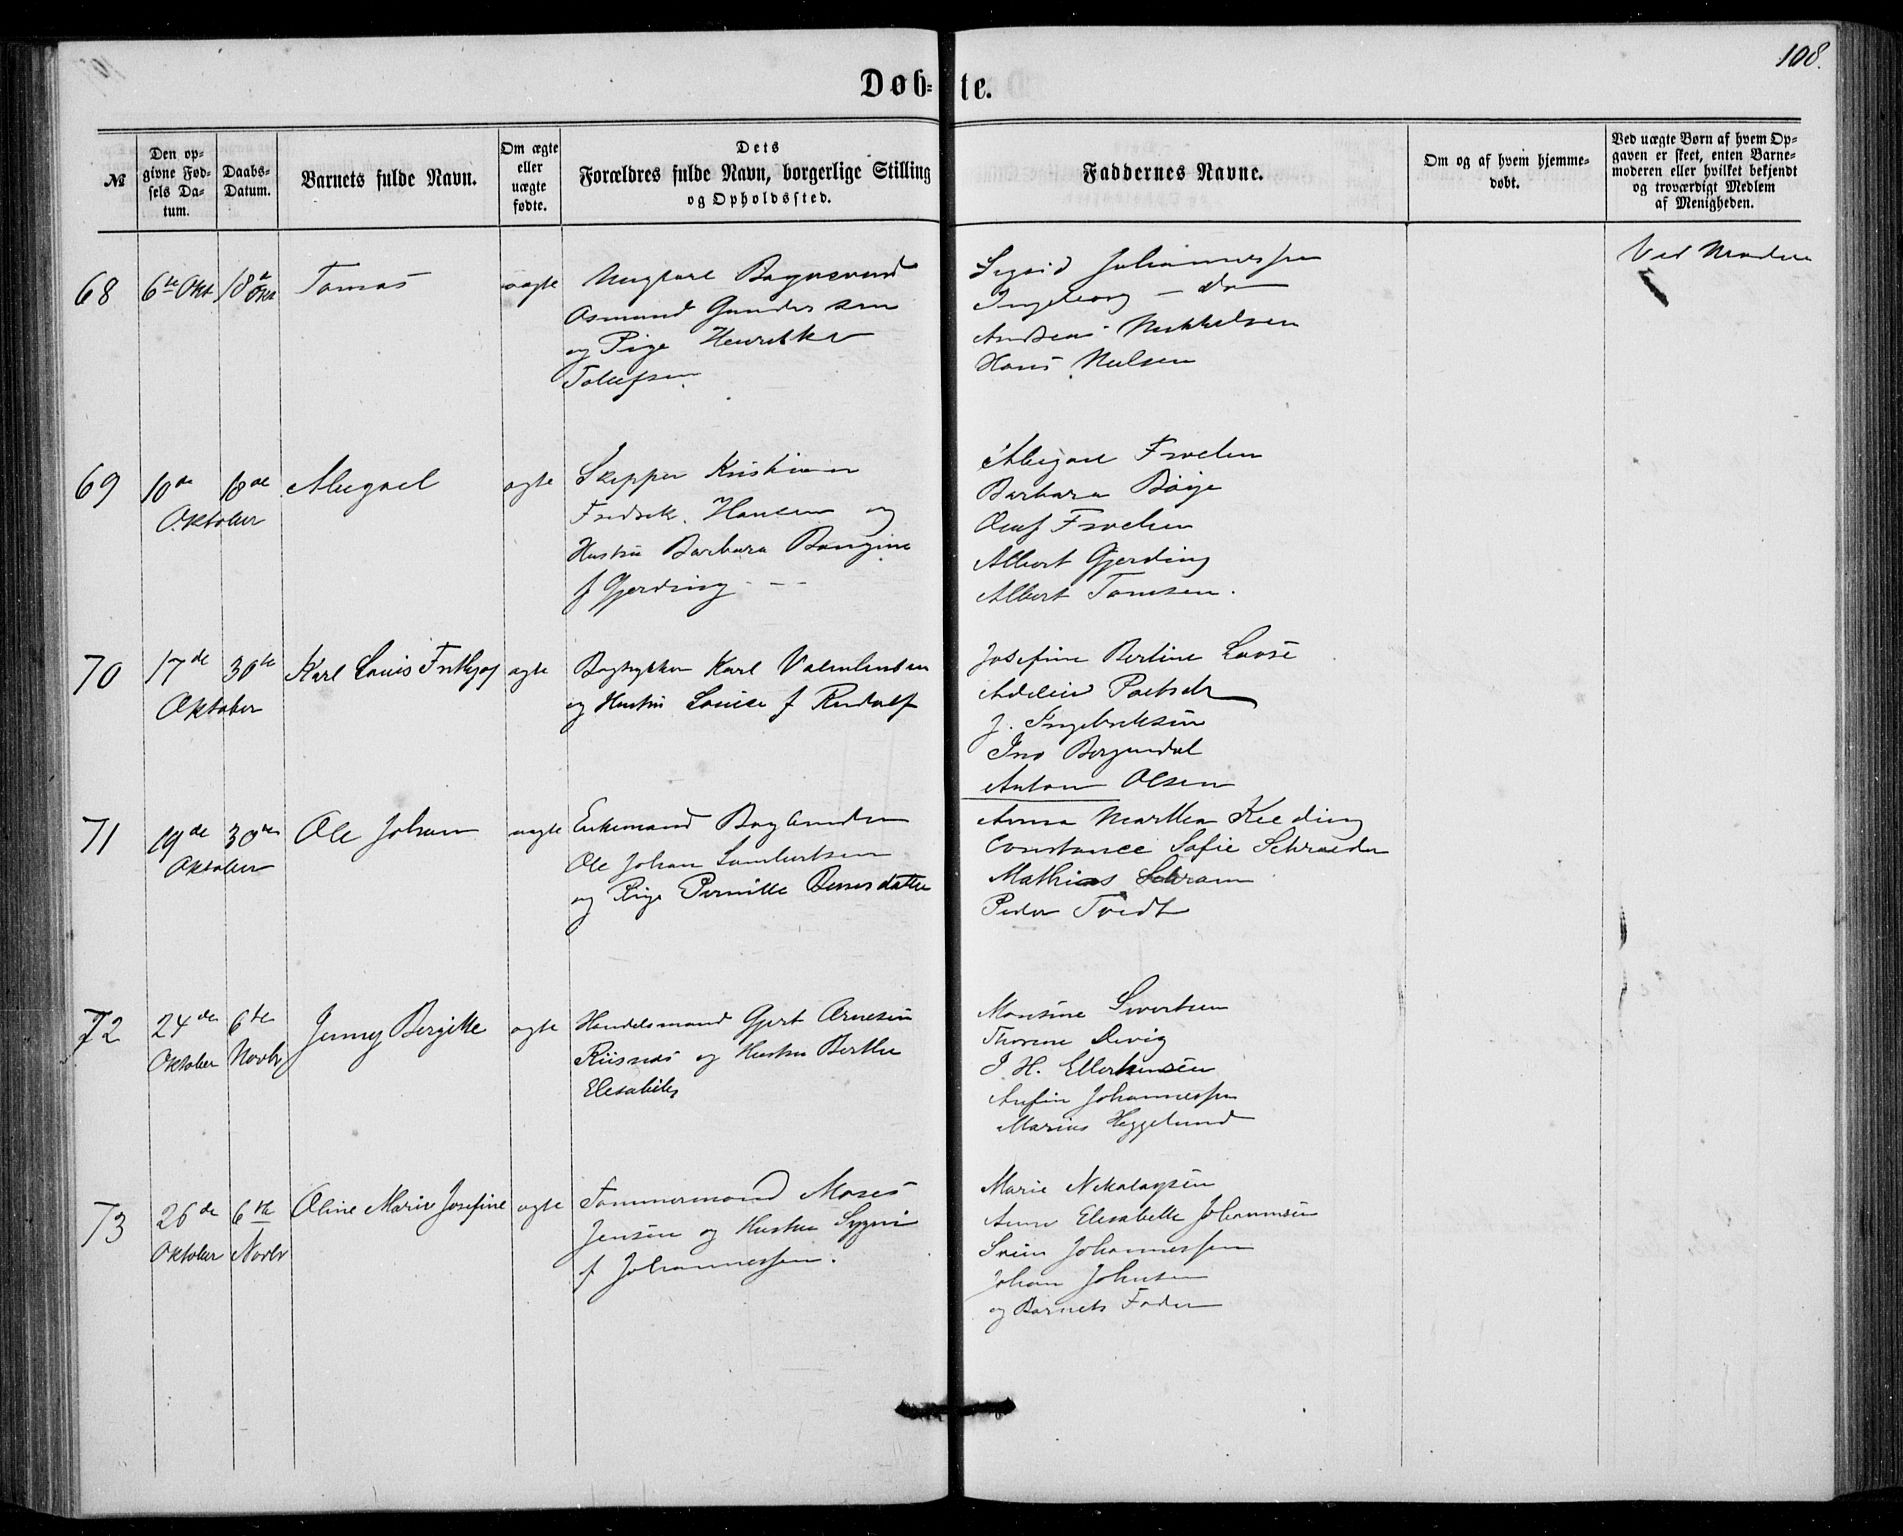 108.
Døb-te.
№
Den op-
givne Fød-
sels Da-
tum.
Daabs-
Datum.
Barnets fulde Navn.
Om ægte
eller
uægte
fødte.
Dets
Forældres fulde Navn, borgerlige Stilling
og Opholdssted.
Faddernes Navne.
Om og af hvem hjemme-
døbt.
Ved uægte Børn af hvem Op-
gaven er skeet, enten Barne-
moderen eller hvilket bekjendt
og troværdigt Medlem
af Menigheden.
68
6te Okt
18de Okt
Tomas
uægte
Ungkarl
Osmund Gundersen
og Pige
Tollefsen
Sigrid Johannessen
Ingeborg — do
Andreas Mikkelsen
Hans Nielsen
Ved Moderen
69
10de
Oktober
18de
Abigael
ægte
Skipper Kristian
Fredrik Hansen og
Hustru Barbara
f Gjerding
Abigael
Barbara Børge
Oluf
Albert Gjerding
Albert Tomsen.
70
17de
Oktober
30te
Karl Louis Frithjof
ægte
Bogtrykker Karl Valentinsen
og Hustru Louise f Rudolf
Josefine Bertine
J. Ingebriktsen
Anton Olsen
71
19de
Oktober
30te
Ole Johan
uægte
Enkemand
Ole Johan Lambertsen
og Pige Pernille
Anna Martha Kieding
Constance Sofie Schrøder
Mathias Schram
Peder Tvedt
72
24de
Oktober
6te
Novbr
Jenny Bergitte
ægte
Handelsmand Gjert Arnesen
Riisnes og Hustru Berthe
Elisabeth
Monsine Sivertsen
Thorine Devig
J H. Ellerhusen
Anfin Johannessen
Marius Heggelund
73
26de
Oktober
6te
Novbr
Oline Marie Josefine
ægte
Tømmermand Moses
Jensen og Hustru
f Johannessen.
Marie Nikolaysen
Anne Elisabeth Johannesen
Svein Johannessen
Johan Johnsen
og Barnets Fader